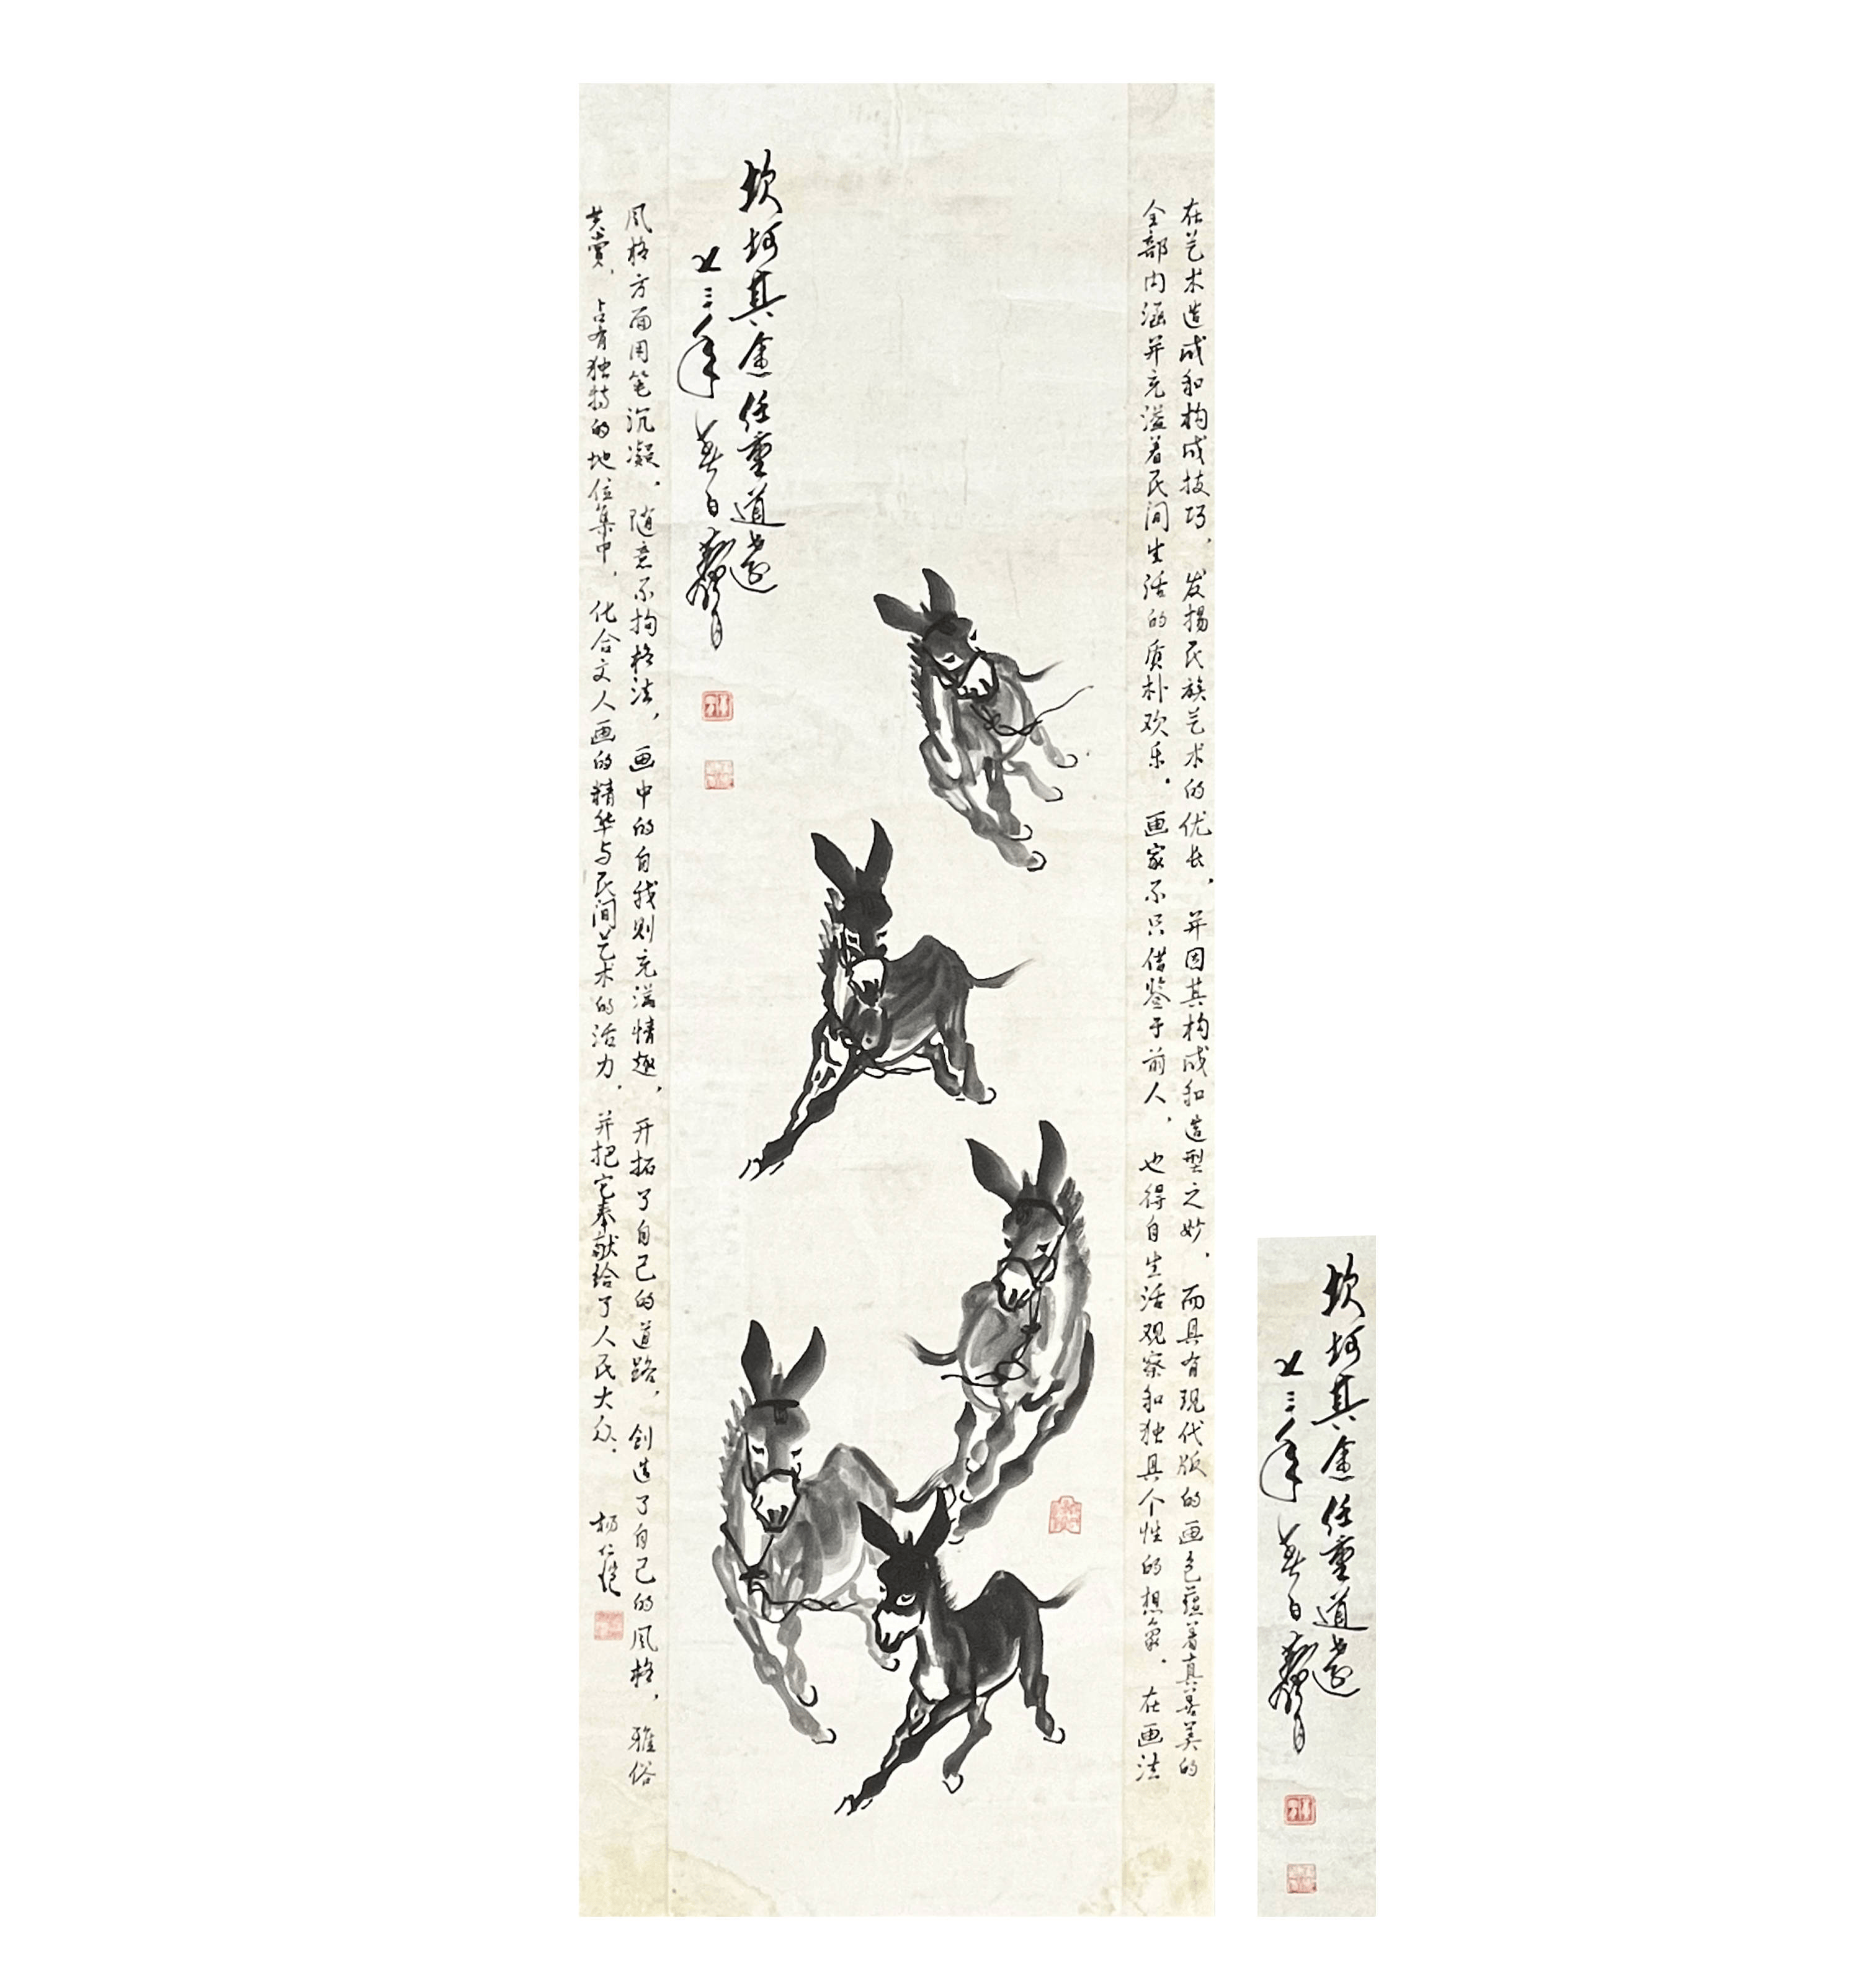 在艺术造成和构成技巧，发揚民族艺术的优长，并因其构成和造型之妙，而具有現代版的画色蕴着真善美的
全部内涵并充溢着民间生活的质朴欢乐。画家不只借鉴于前人，也得自生活观察和独具个性的想象。在画法
坎坷其途任重道遠
七三年 黄胄
風格方面用笔沉凝，随意不拘格法，画中的自我则充溢情趣，开拓了自己的道路，创造了自己的風格，雅俗
共赏，占有独特的地位集中，化合文人画的精华与民间艺术的活力，并把它奉献给了人民大众。 杨仁恺
坎坷其途任重道遠
七三年 黄胄